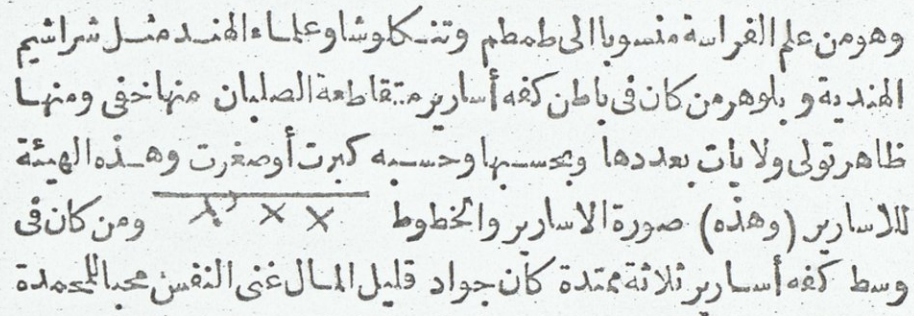 وهو من علم الفراسة منسوبا الى طمطم وتنكلوشا وعلماء الهند مثل شراشيم
الهندية و بلوهر من كان فى باطن كفه أسارير متقاطعة الصلبان منها خفى ومنها
ظاهر تولى ولايات بعددها وبحسبها وحسبه كبرت أو صغرت وهذه الهيئة
للاسارير (وهذه) صورة الاسارير والخطوط ومن كان فى
وسط كفه أسارير ثلاثة ممتدة كان جواد قليل المال غنى النفس محبا للمحمدة